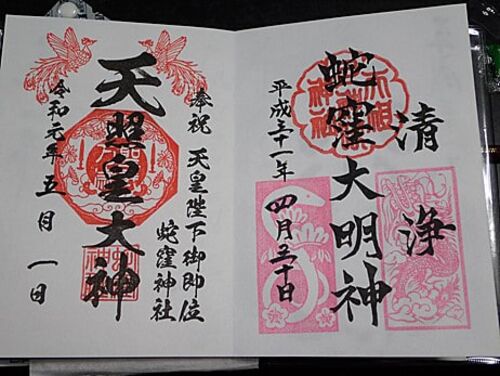 清浄
蛇窪大明神
平成三十一年
四月三十日
奉祝 天皇陛下御即位
蛇窪神社
天照皇大神
令和元年五月一日